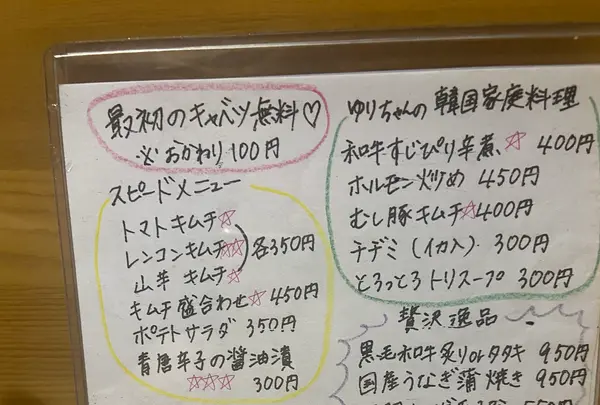 最初のキャベツ無料♡
※おかわり100円
スピードメニュー
トマトキムチ☆
レンコンキムチ☆☆
山芋キムチ☆
各350円
キムチ盛合わせ☆450円
ポテトサラダ 350円
青唐辛子の醤油漬
☆☆☆ 300円
ゆりちゃんの韓国家庭料理
和牛すじぴり辛煮☆ 400円
ホルモン炒め 450円
むし豚キムチ☆400円
チヂミ(イカ入) 300円
とろっとろトリスープ 300円
贅沢逸品
黒毛和牛炙りorタタキ 950円
国産うなぎ蒲焼き 950円
550円